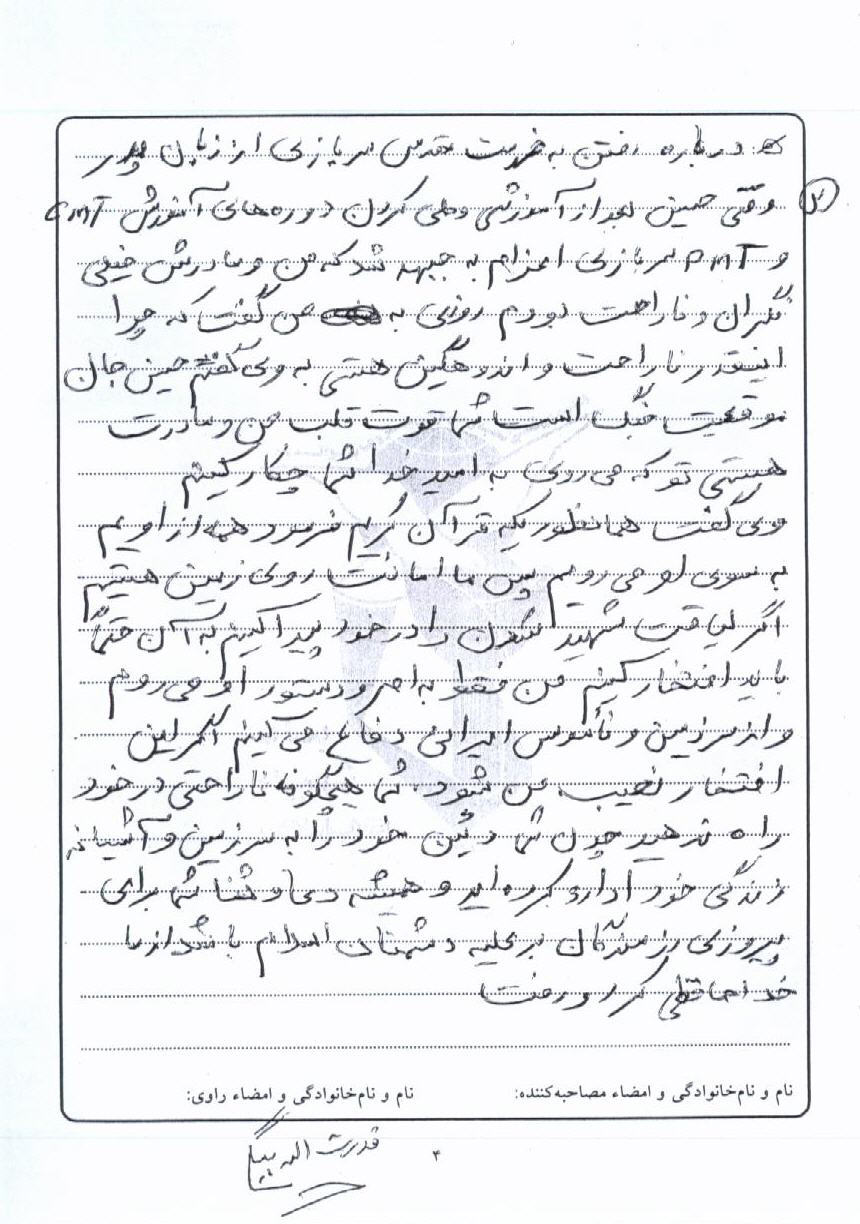 درباره رفتن به خدمت مقدس سربازی از زبان پدر
وقتی حسین بعد از آموزشی و طی کردن دوره‌های آموزش CMT
و PMT سربازی اعزام به جبهه شد که من و مادرش خیلی
نگران و ناراحت بودم روزی به من گفت که چرا
اینقدر ناراحت و اندوهگین هستی به وی گفتم حسین جان
موقعیت جنگ است شما قوت قلب من و مادرت
هستی تو که می روی به امید خدا شما چکار کنیم
وی گفت همانطوریکه قرآن کریم فرمود همه از اویم
به سوی او می رویم پس ما امانت روی زمین هستیم
اگر لیاقت شهید شدن را در خود پیدا کنیم به آن حتماً
باید افتخار کنیم من فقط به امر و دستور او می روم
و از سرزمین و ناموس ایرانی دفاع می کنیم اگر این
افتخار نصیب من شود. شما هیچگونه ناراحتی در خود
راه ندهید چون شما دئین خود را به سرزمین و آشیانه
زندگی خود اداره کرده اید و همیشه دعا و ثنا شما برای
پیروزی رزمندگان بر علیه دشمنان اسلام باشد از ما
خداحافظی کرد و رفت
نام و نام‌خانوادگی و امضاء مصاحبه‌کننده: نام و نام‌خانوادگی و امضاء راوی:
قدرت اله
۴